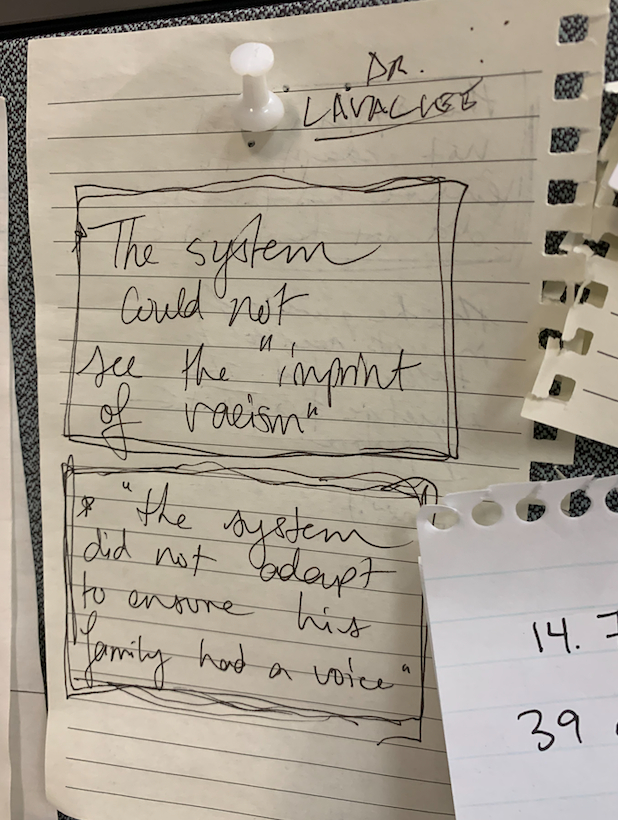 DR.
LAVALLEE
* The system
could not
see the "imprint
of racism"
* "the system
did not adapt
to ensure his
family had a voice"
14.
39